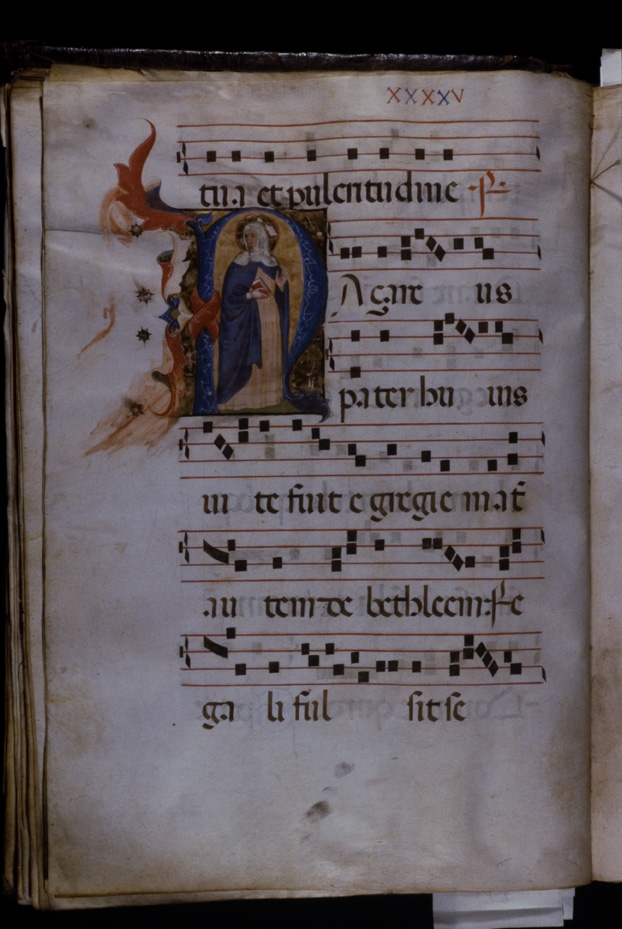 XXXXV
tua et pulcritudine
N Agare us
pater hu ius
ui te fuit egregie mat̄
au tem de bethleem: Re
ga li ful sit se